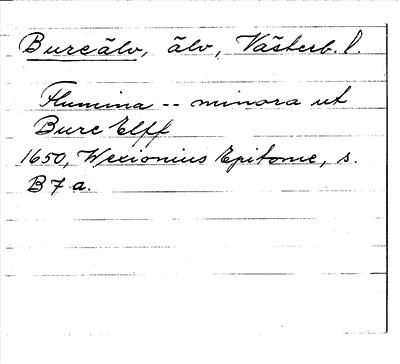 Bureälv, älv, Västerb. l.
Flumina -- minora ut
Bure Elff
1650, Wexionius Epitome, s.
B 7 a.